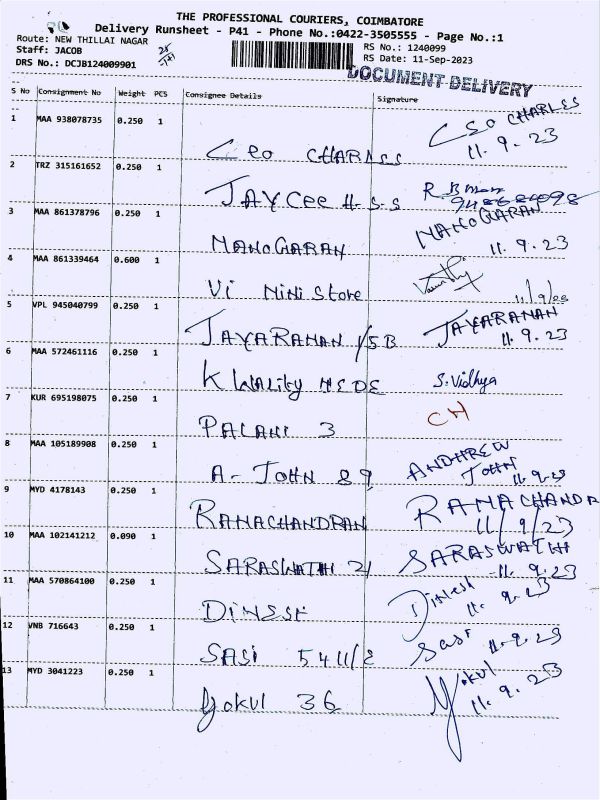 THE PROFESSIONAL COURIERS, COIMBATORE
Delivery Runsheet - P41 - Phone No.:0422-3505555 - Page No.:1
Route: NEW THILLAI NAGAR RS No.: 1240099
Staff: JACOB RS Date: 11-Sep-2023
DRS No.: DCJB124009901
DOCUMENT DELIVERY
S No Consignment No Weight PCS Consignee Details Signature
1 MAA 938078735 0.250 1 CEO CHARLES CEO CHARLES
11.9.23
2 TRZ 315161652 0.250 1 JAYCee H.S.S R.B
3 MAA 861378796 0.250 1 MANOGARAN MANOGARAN
11.9.23
4 MAA 861339464 0.600 1 Vi Mini Store
5 VPL 945040799 0.250 1 JAYARAMAN /5B JAYARAMAN
11.9.23
6 MAA 572461116 0.250 1 K WALity S.Vidhya
7 KUR 695198075 0.250 1 PALANI 3 CH
8 MAA 105189908 0.250 1 A- JOHN 89 ANDHREW
JOHN 11.9.23
9 MYD 4178143 0.250 1 RAMACHANDRAN RAMACHANDR
11/9/23
10 MAA 102141212 0.090 1 SARASWATHI 21 SARASWATHI
11.9.23
11 MAA 570864100 0.250 1 DINESH Dinesh
11.9.23
12 VNB 716643 0.250 1 SASI 5411/2 Sasi 11.9.23
13 MYD 3041223 0.250 1 Gokul 36 Gokul
11.9.23